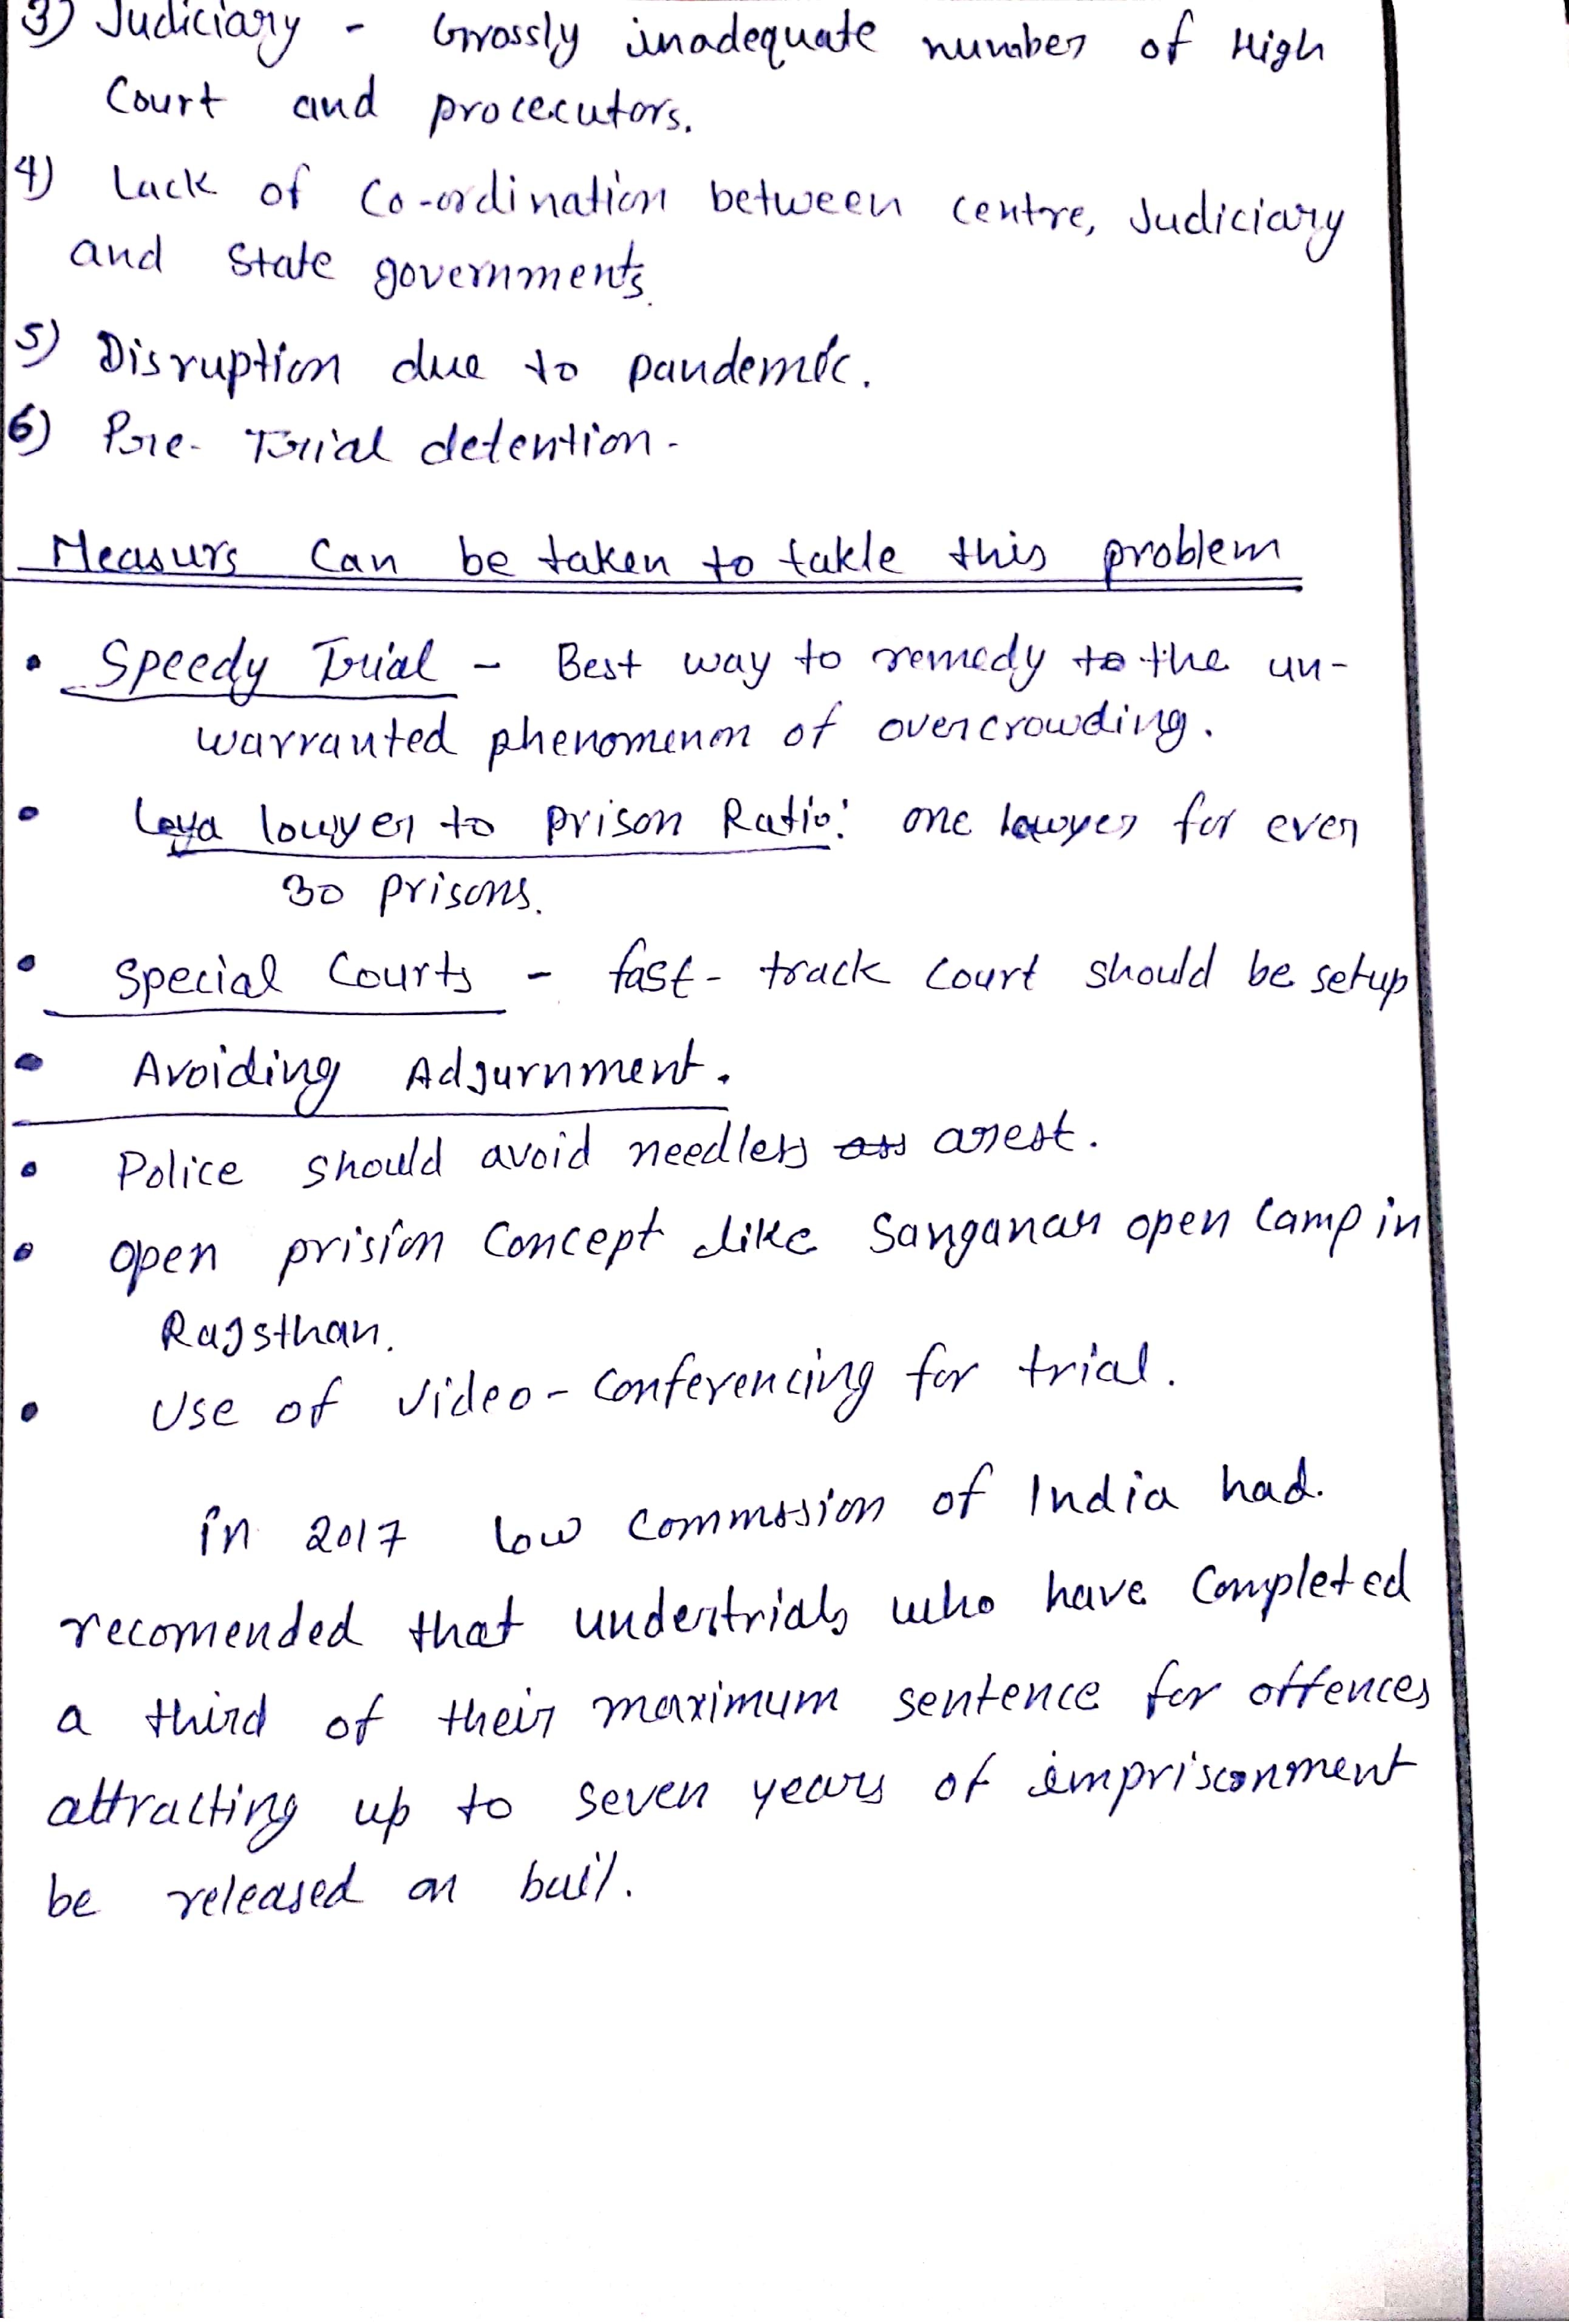 3) Judiciary - Grossly inadequate number of High
Court and prococutors.
4) Lack of Co-ordination between centre, Judiciary
and State governments.
5) Disruption due to pandemic.
6) Pre- Trial detention -
Measurs Can be taken to takle this problem
• Speedy Trial - Best way to remedy to the un-
warranted phenomenon of overcrowding.
• lawyer to prison Ratio: one lawyer for ever
30 prisons.
• Special Courts - fast- track court should be setup
• Avoiding Adjurnment.
• Police should avoid needless arest.
• open prision Concept like Sanganar open camp in
Rajsthan.
• Use of video-conferencing for trial.
in 2017 low commission of India had.
recomended that undertrials who have completed
a third of their maximum sentence for offences
attracting up to seven years of imprisonment
be released on bail.